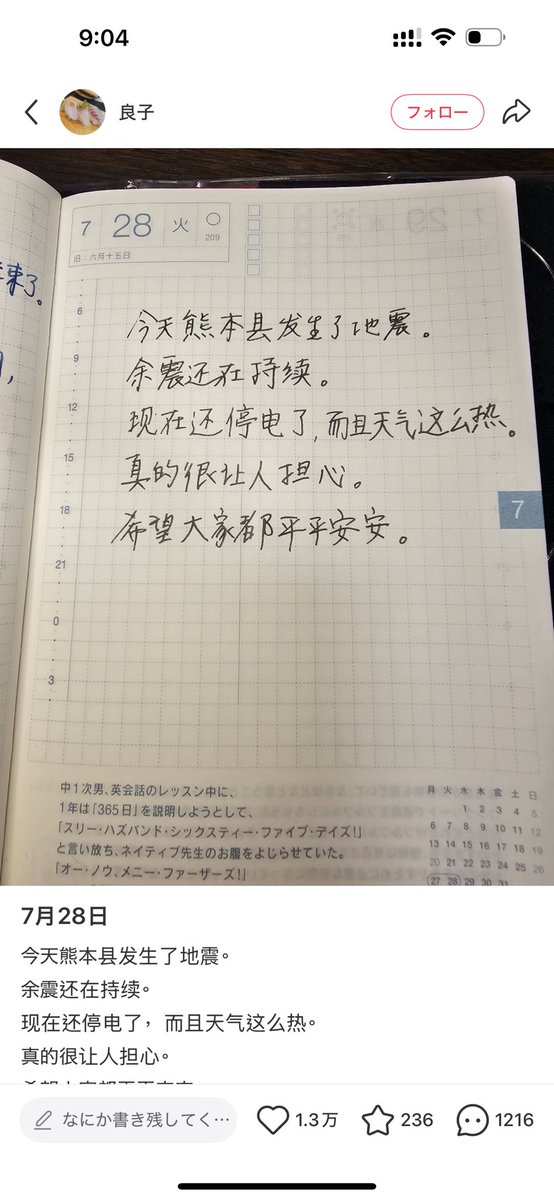 9:04
良子
フォロー
7 28 火
209
旧:六月十五日
6
今天熊本县发生了地震。
9
余震还在持续。
12
现在还停电了,而且天气这么热。
15
真的很让人担心。
18
7
希望大家都平平安安。
21
0
3
中1次男、英会話のレッスン中に、
1年は「365日」を説明しようとして、
「スリー・ハズバンド・シックスティー・ファイブ・デイズ!」
と言い放ち、ネイティブ先生のお腹をよじらせていた。
「オー・ノウ、メニー・ファーザーズ!」
月 火 水 木 金 土 日
1 2 3 4 5
6 7 8 9 10 11 12
13 14 15 16 17 18 19
20 21 22 23 24 25 26
27 28 29 30 31
7月28日
今天熊本县发生了地震。
余震还在持续。
现在还停电了，而且天气这么热。
真的很让人担心。
なにか書き残してく…
1.3万
236
1216